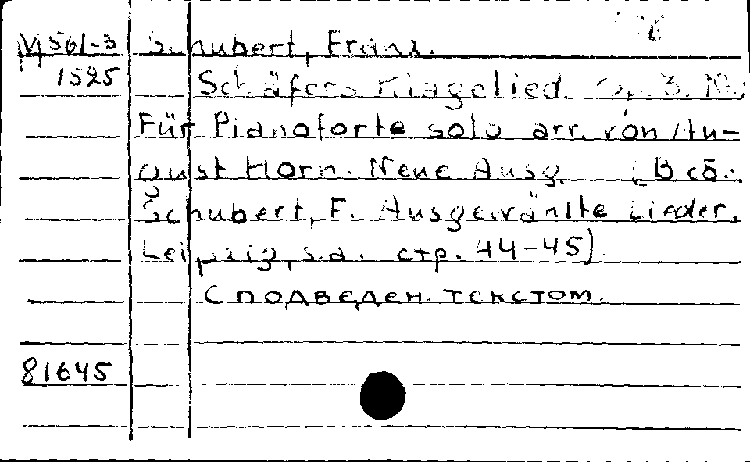 М 561-3 Schubert, Franz.
1525 Schäfers Klagelied. Op. 3. №
Für Pianoforte solo arr. von Au-
gust Horn. Neue Ausg. (В сб.:
Schubert, F. Ausgewählte Lieder.
Leipzig, s.a. стр. 44-45)
С подведен. текстом.
81645